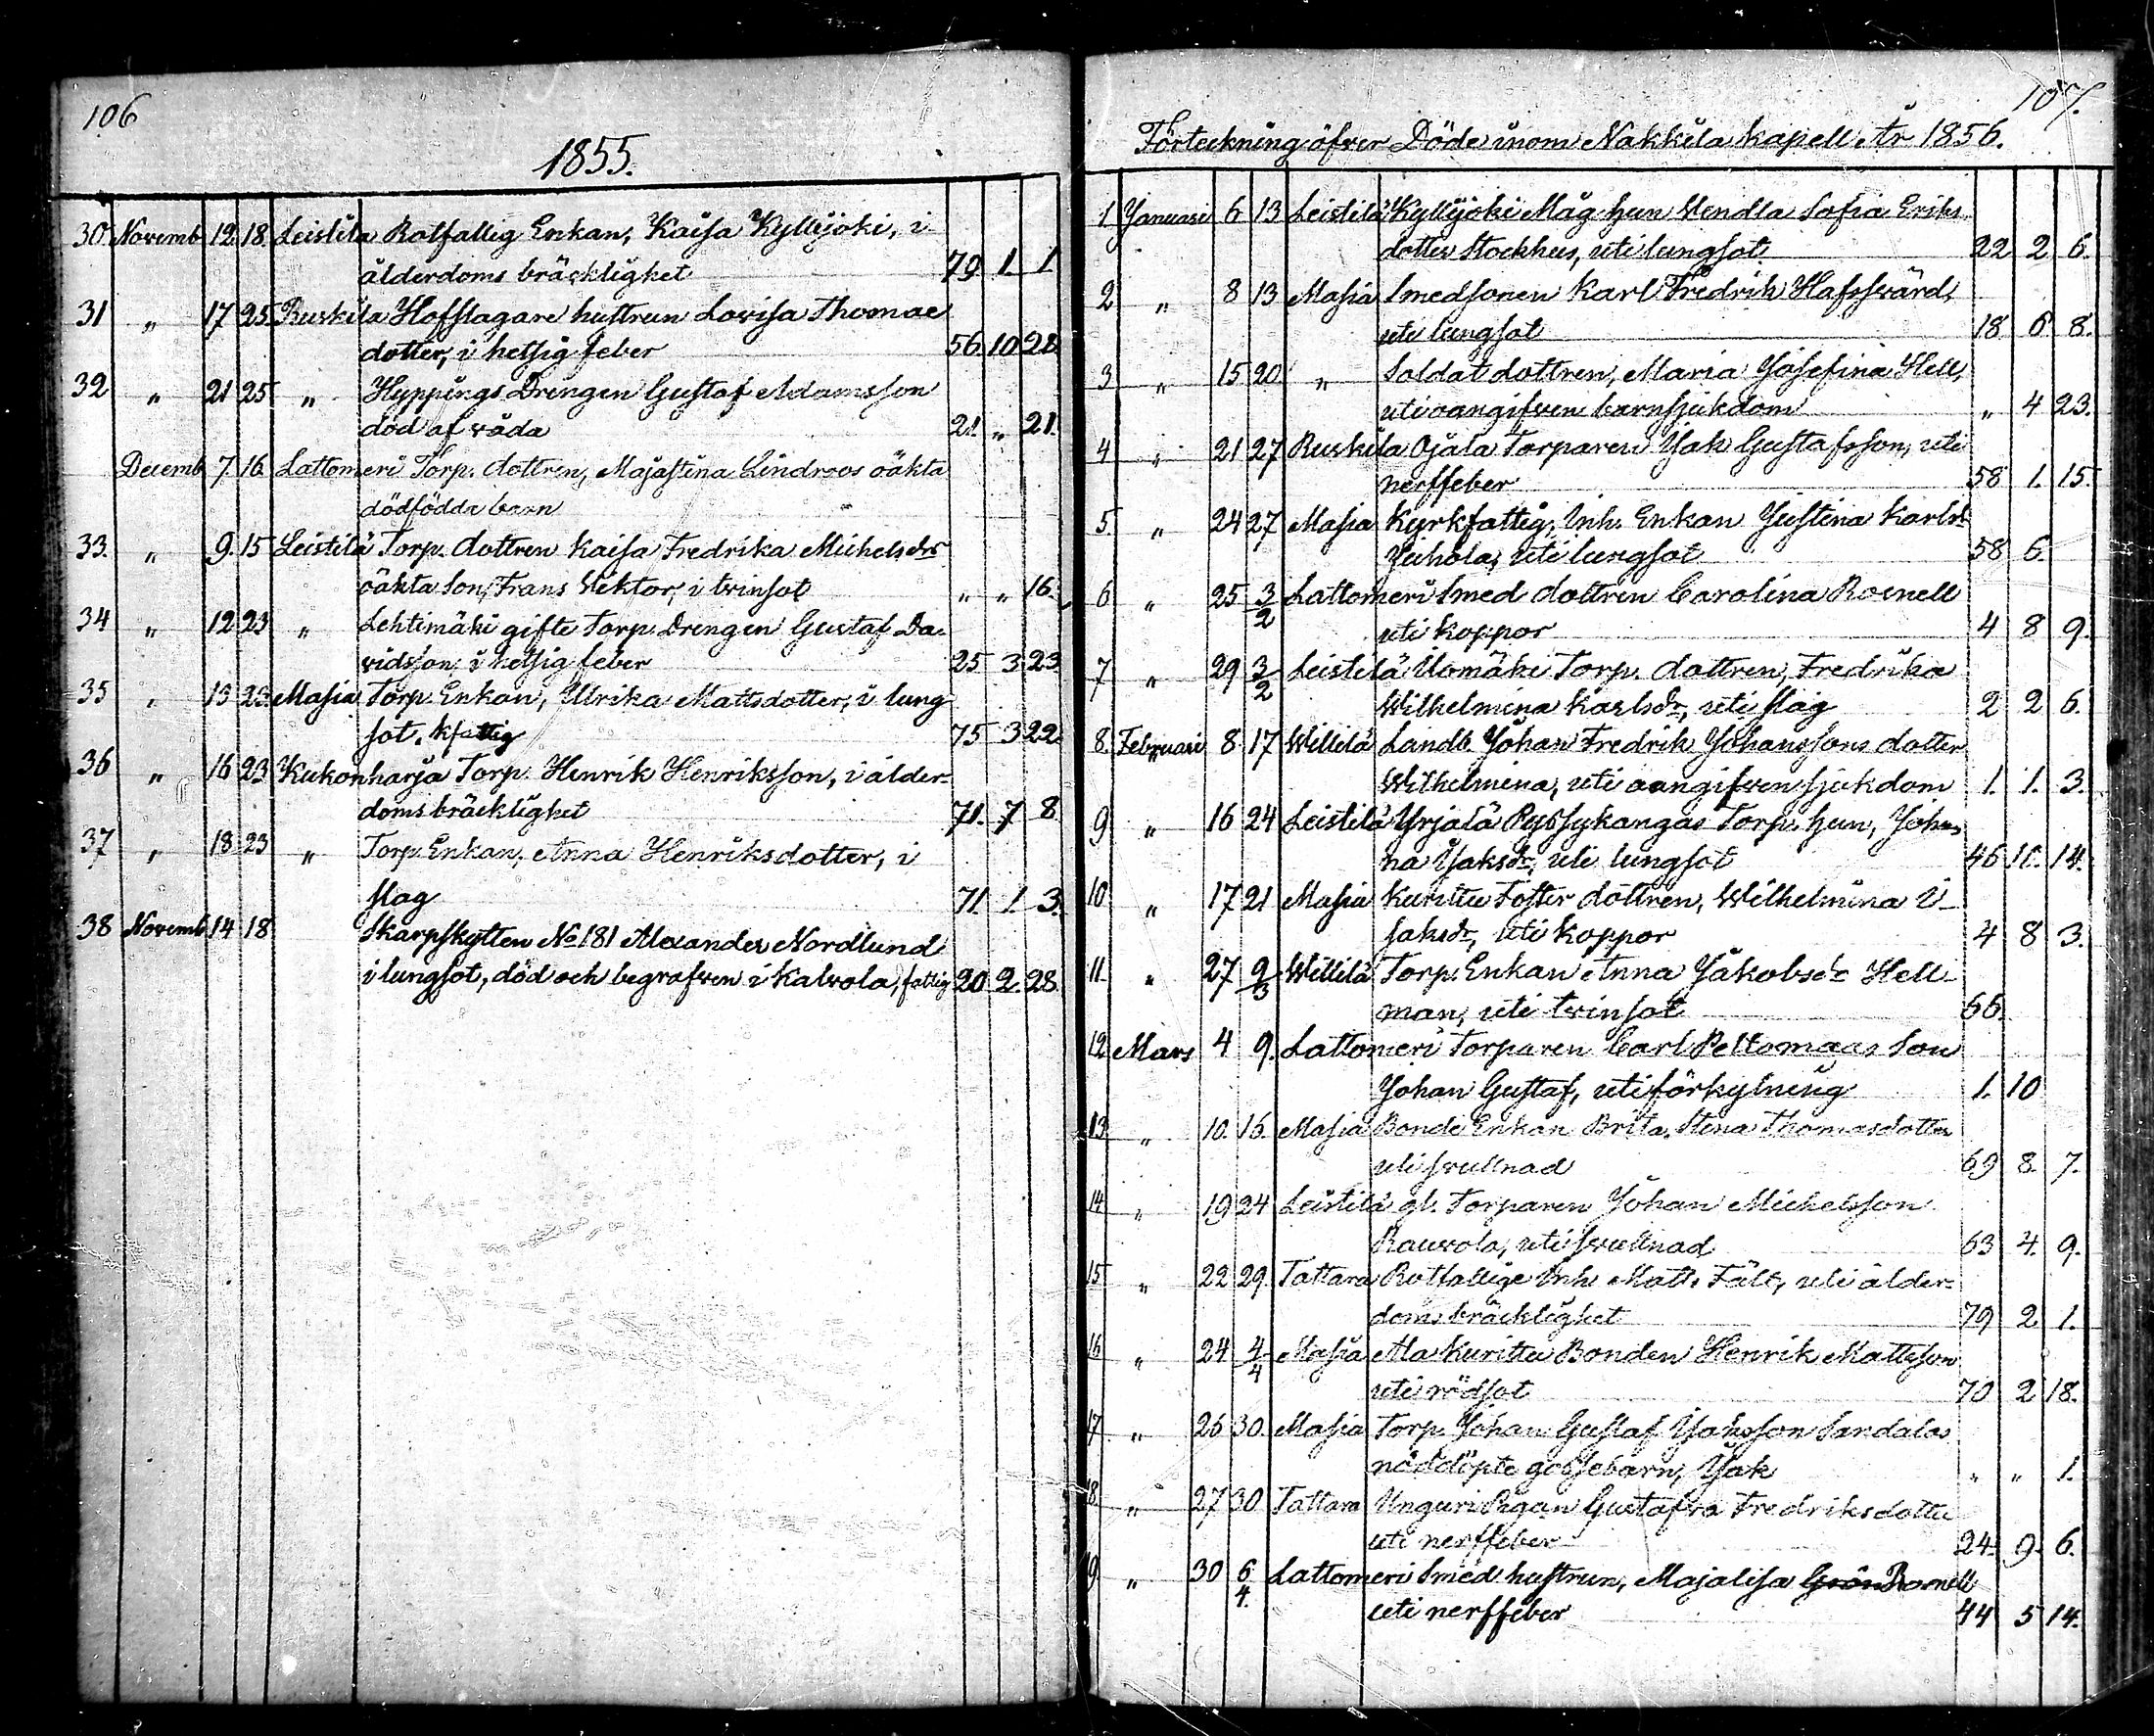 106
1855.
30 Novemb 12 18 Leistila Rotfattig Enkan, Kaisa Kyllijoki, i
ålderdoms bräcklighet 79 1. 1
31 " 17 25 Ruskila Hofslagare hustrun Lovisa Thomae
dotter, i hetsig feber 56 10 28
32 " 21 25 " Hyppings Drengen Gustaf Adamsson
död af våda 21. " 21.
Decemb 7. 16 Lattomeri Torp. dottren, Majastina Lindroos oäkta
dödfödda barn
33. " 9. 15 Leistilä Torp. dottren Kaisa Fredrika Michelsdr
oäkta Son, Frans Wiktor, i tvinsot " " 16.
34 " 12 23 " Lehtimäki gifte Torp. Drengen Gustaf Da-
vidsson i hetsig feber 25 3. 23
35 " 13 23 Masia Torp. Enkan, Ulrika Mattsdotter, i lung
sot. kfattig 75 3 22
36 " 16 23 Kukonharja Torp. Henrik Henriksson, i ålder-
doms bräcklighet 71. 7 8
37 " 18 23 " Torp. Enkan, Anna Henriksdotter, i
slag 71. 1. 3.
38 Novemb 14 18 Skarpskytten No 181 Alexander Nordlund
i lungsot, död och begrafven i Kalvola, fattig 20 2. 28.
107.
Förteckning öfver Döde inom Nakkila kapell År 1856.
1 Januari 6 13 Leistilä Kyllijoki Måg hun Wendla Sofia Eriks
dotter Stockhus, uti lungsot 22 2 6.
2 " 8 13 Masia Smedsonen Karl Fredrik Hafssvärd,
uti lungsot 18 6 8.
3 " 15 20 " Soldat dottren, Maria Josefina Hell,
uti oangifven barnsjukdom " 4 23.
4 " 21 27 Ruskila Ojala Torparen Jak Gustafsson, uti
nerffeber 58 1. 15.
5. " 24 27 Masia Kyrkfattig, Inh. Enkan Justina Karlsd
Juhola, uti lungsot 58 6.
6 " 25 3/2 Lattomeri Smed dottren Carolina Rosnell
uti koppor 4 8 9.
7 " 29 3/2 Leistilä Uomäki Torp. dottren, Fredrika
Wilhelmina Karlsdr, uti slag 2 2 6.
8. Februari 8 17 Willilä Landb. Johan Fredrik Johanssons dotter
Wilhelmina, uti oangifven sjukdom 1. 1. 3.
9 " 16 24 Leistilä Yrjälä Pyssykangas Torp. hun, Johan
na Jaksdr, uti lungsot 46 11. 14.
10 " 17 21 Masia Kurittu Foster dottren, Wilhelmina I-
saksdr, uti koppor 4 8 3.
11. " 27 9/3 Willilä Torp. Enkan Anna Jakobsdr Hell-
man, uti tvinsot 66.
12 Mars 4 9. Lattomeri Torparen Carl Peltomaas Son
Johan Gustaf, uti förkylning 1. 10
13 " 10. 16. Masia Bonde Enkan Brita Stina Thomasdotter
uti svullnad 69 8. 7.
14 " 19 24 Leistilä gl. Torparen Johan Michelsson
Rauvola, uti svullnad 63 4. 9.
15 " 22 29. Tattara Rotfattige Inh. Matts Fält, uti ålder-
doms bräcklighet 79 2 1.
16 " 24 4/4 Masia Ala Kurittu Bonden Henrik Mattsson
uti rödsot 70 2 18.
17 " 26 30. Masia Torp. Johan Gustaf Jaksson Sandalas
nöddöpte gossebarn, Jak " " 1.
18. " 27 30 Tattara Unguri Pigan Gustafva Fredriksdotter
uti nerffeber 24. 9. 6.
19 " 30 6/4. Lattomeri Smed hustrun, Majalisa Grön Rosnell
uti nerffeber 44 5 14.